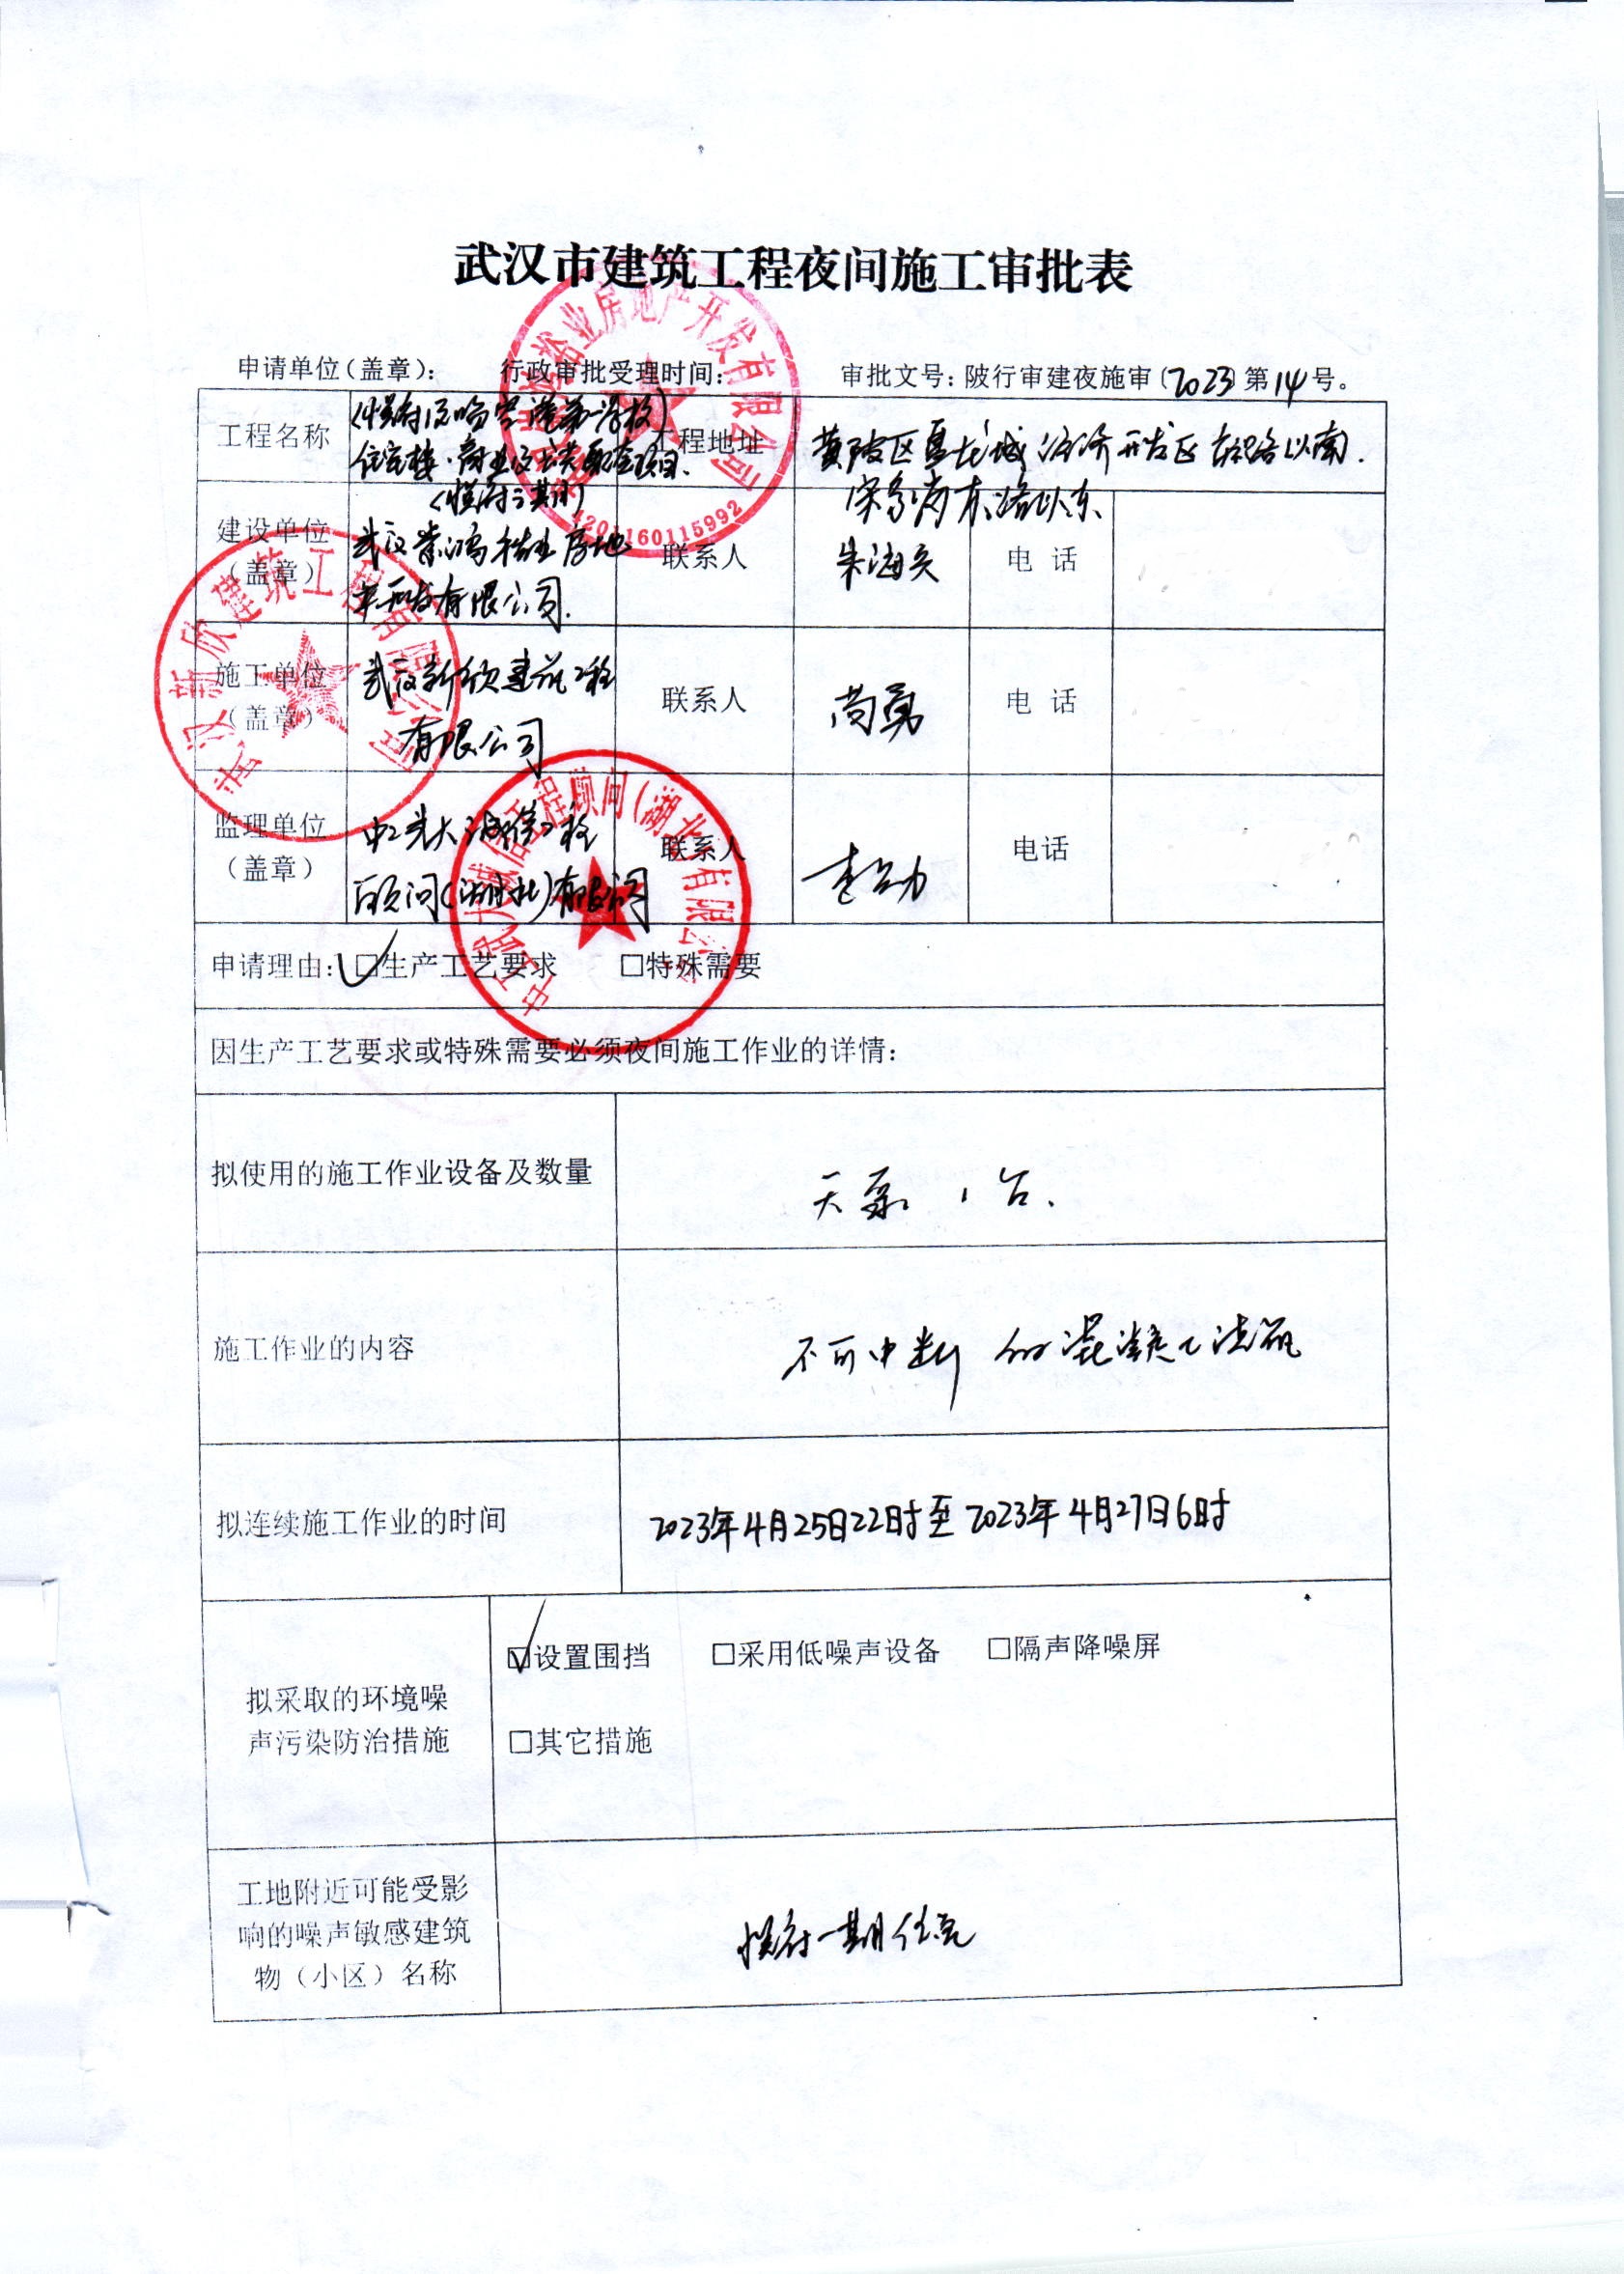 武汉市建筑工程夜间施工审批表
申请单位(盖章): 行政审批受理时间: 审批文号: 陂行审建夜施审(2023)第14号。
工程名称
住宅楼、商业及 配套项目.
工程地址
黄陂区盘龙城经济开发区 以南.
宋家岗东路以东
建设单位
(盖章)
武汉 鸿裕业房地
产开发有限公司.
联系人
朱海
电 话
施工单位
(盖章)
武汉新欣建筑工程
有限公司
联系人
尚勇
电 话
监理单位
(盖章)
中工武大诚信工程
顾问(湖北)有限公司
联系人
电话
申请理由: ☑生产工艺要求 □特殊需要
因生产工艺要求或特殊需要必须夜间施工作业的详情:
拟使用的施工作业设备及数量
天泵 1台.
施工作业的内容
不可中断的混凝土浇筑
拟连续施工作业的时间
2023年4月25日22时至2023年4月27日6时
拟采取的环境噪
声污染防治措施
☑设置围挡 □采用低噪声设备 □隔声降噪屏
□其它措施
工地附近可能受影
响的噪声敏感建筑
物(小区)名称
府一期住宅
裕业房地产开发有限公司
4201160115992
武汉新欣建筑工程有限公司
中工武大诚信工程顾问(湖北)有限公司